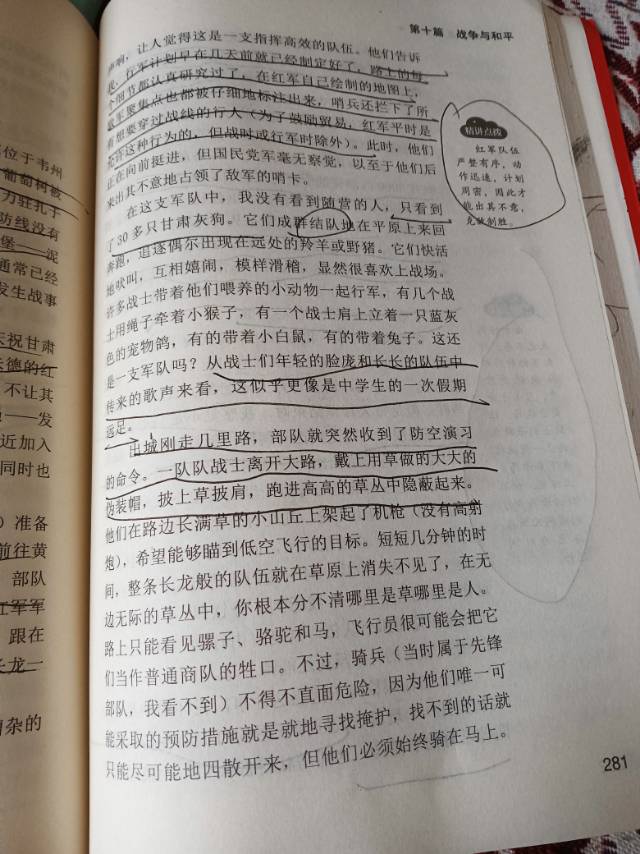 位于韦州
葡萄树被
力驻扎于
防线没有
堡——泥
通常已经
发生战事
庆祝甘肃
不让其
发
近加入
同时也
准备
前往黄
部队
红军军
跟在
长龙一
杂的
第十篇 战争与和平
响，让人觉得这是一支指挥高效的队伍。他们告诉
我，行军计划早在几天前就已经制定好了，路上的每
个细节都认真研究过了，在红军自己绘制的地图上，
敌军聚集点也都被仔细地标注出来，哨兵还拦下了所
有想要穿过战线的行人（为了鼓励贸易，红军平时是
允许这种行为的，但战时或行军时除外）。此时，他们
正在向前挺进，但国民党军毫无察觉，以至于他们后
来出其不意地占领了敌军的哨卡。
在这支军队中，我没有看到随营的人，只看到
了30多只甘肃灰狗。它们成群结队地在平原上来回
奔跑，追逐偶尔出现在远处的羚羊或野猪。它们快活
地吠叫，互相嬉闹，模样滑稽，显然很喜欢上战场。
许多战士带着他们喂养的小动物一起行军，有几个战
士用绳子牵着小猴子，有一个战士肩上立着一只蓝灰
色的宠物鸽，有的带着小白鼠，有的带着兔子。这还
是一支军队吗？从战士们年轻的脸庞和长长的队伍中
传来的歌声来看，这似乎更像是中学生的一次假期
远足。
出城刚走几里路，部队就突然收到了防空演习
的命令。一队队战士离开大路，戴上用草做的大大的
伪装帽，披上草披肩，跑进高高的草丛中隐蔽起来。
他们在路边长满草的小山丘上架起了机枪（没有高射
炮），希望能够瞄到低空飞行的目标。短短几分钟的时
间，整条长龙般的队伍就在草原上消失不见了，在无
边无际的草丛中，你根本分不清哪里是草哪里是人。
路上只能看见骡子、骆驼和马，飞行员很可能会把它
们当作普通商队的牲口。不过，骑兵（当时属于先锋
部队，我看不到）不得不直面危险，因为他们唯一可
能采取的预防措施就是就地寻找掩护，找不到的话就
只能尽可能地四散开来，但他们必须始终骑在马上。
精讲点拨
红军队伍
严整有序，动
作迅速，计划
周密，因此才
能出其不意，
克敌制胜。
281